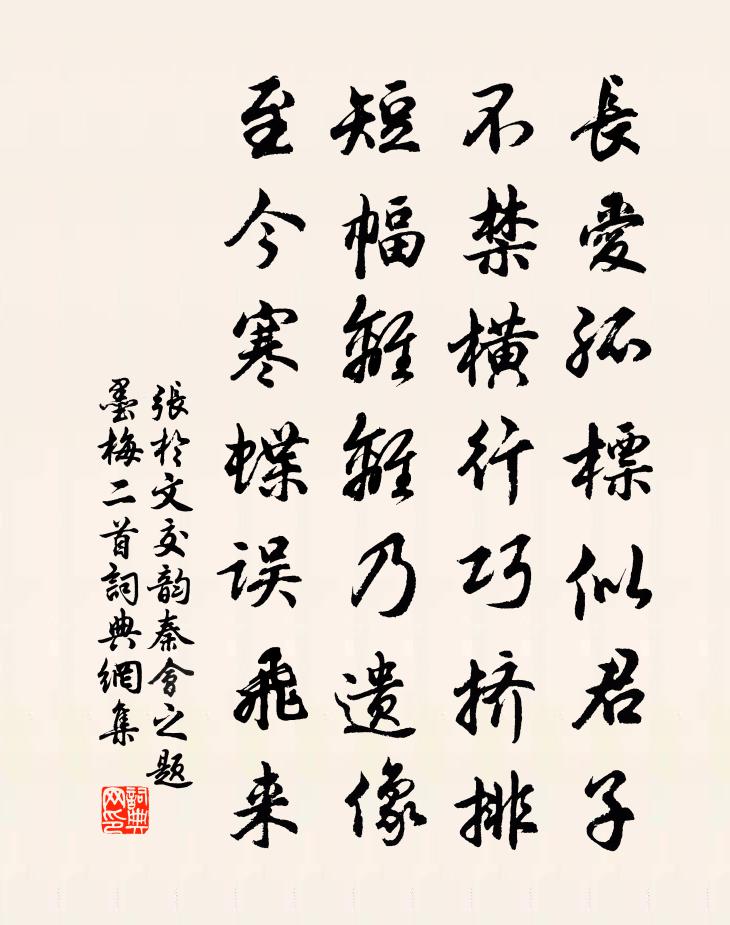 長愛孤標似君子
不禁横行巧挤排
短幅離離乃遗像
至今寒蝶误飛来
張於文交韵秦會之题
墨梅二首詞典網集
詞典网印